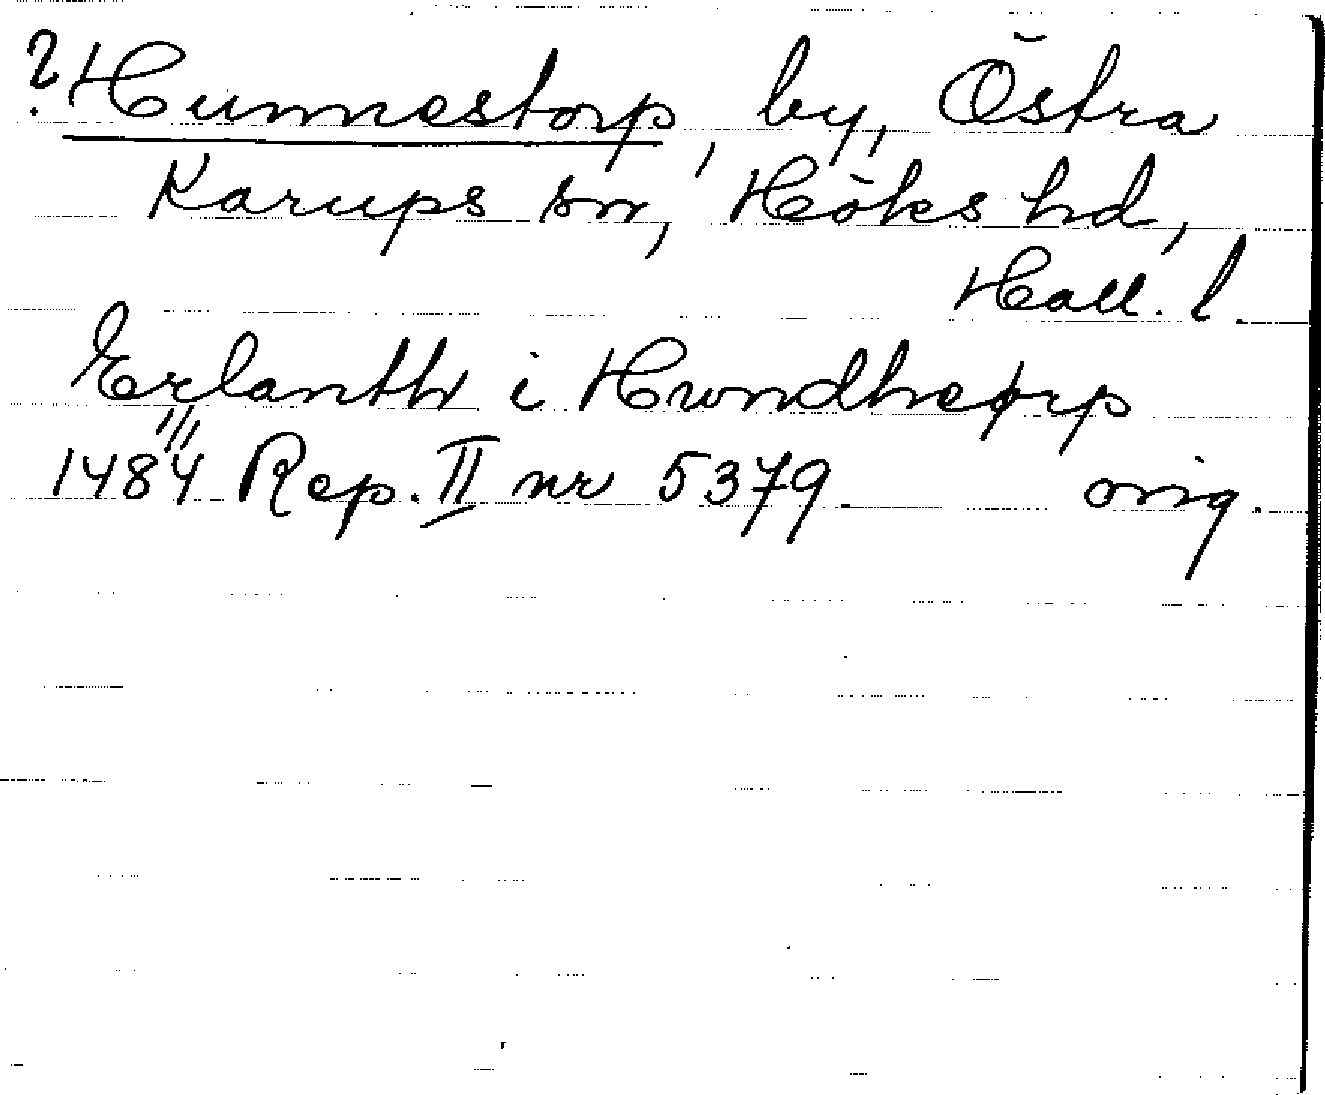 ? Hunnestorp, by, Östra
Karups sn, Höks hd,
Hall. l.
Erlanth i Hwndhetorp
1484 Rep. II nr 5379 orig.